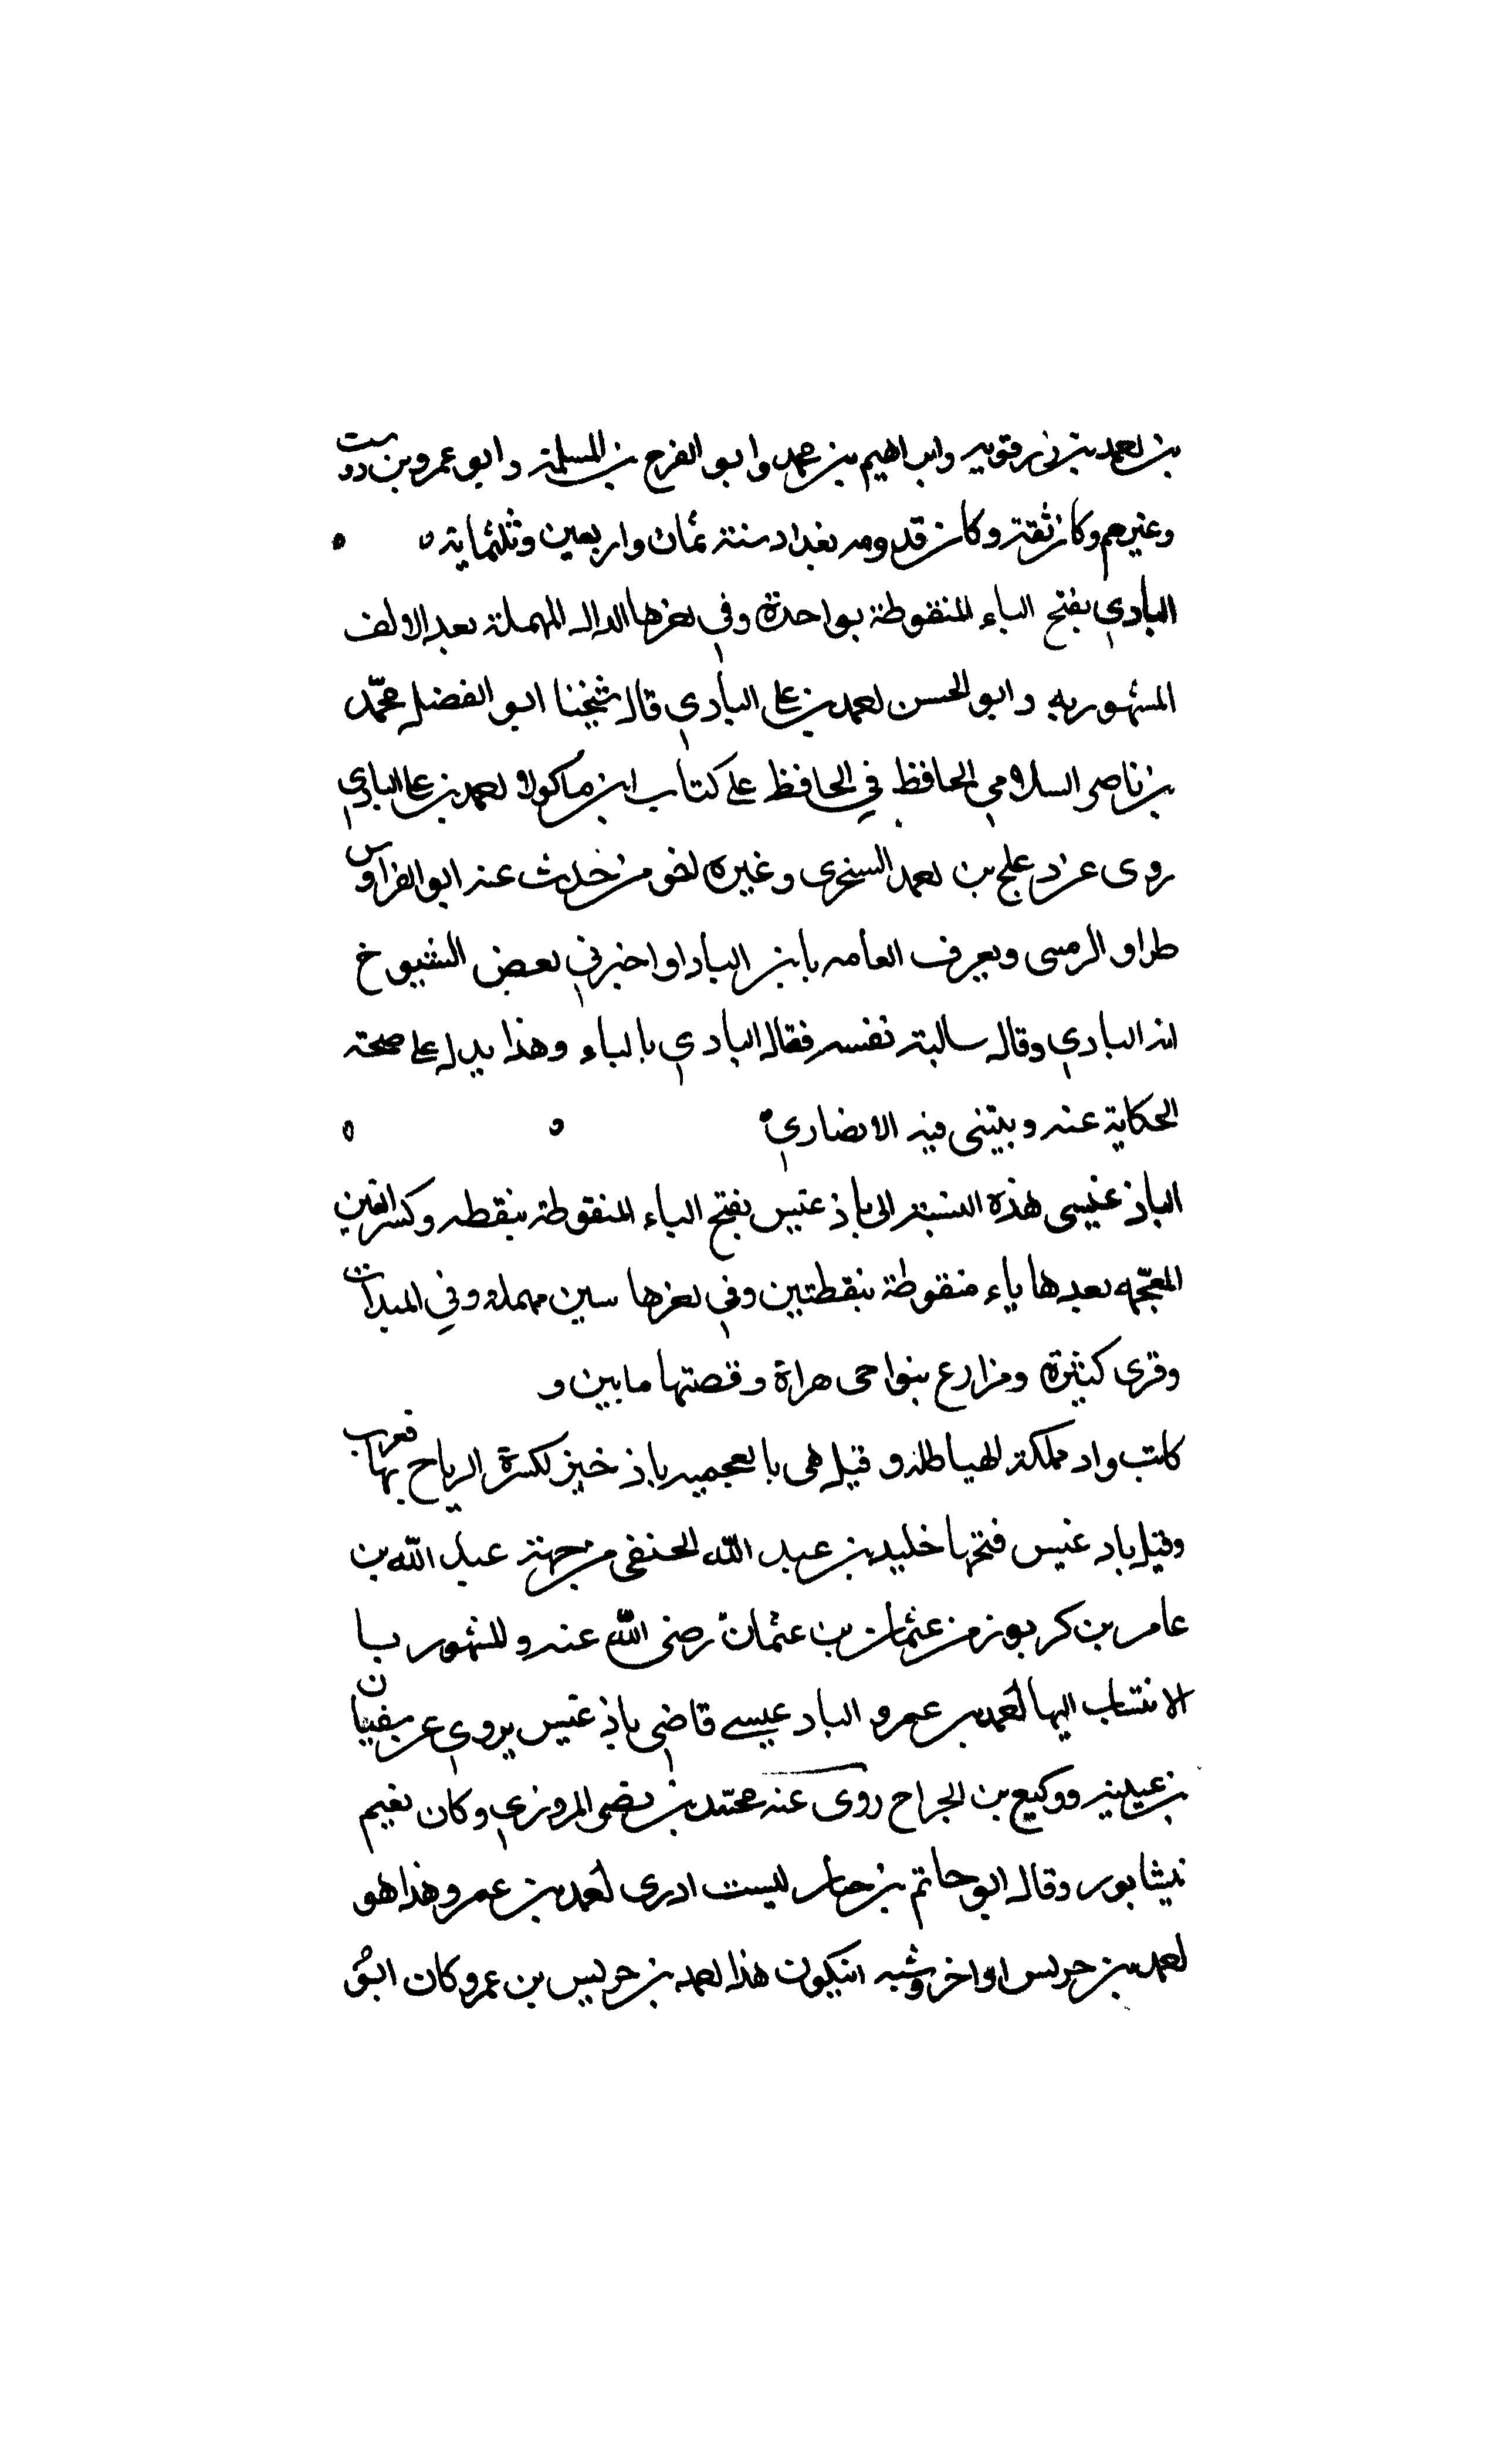 بن احمد بن رزقويه وابراهيم بن محمد وابو الفرج بن المسلمة وابو عمرو بن دوست
وغيرهم وكان ثقة وكان قدومه بغداد سنة ثمان واربعين وثلثماية
البادي بفتح الباء المنقوطة بواحدة وفي اخرها الدال المهملة بعد الالف
المشهور به وابو الحسن احمد بن علي البادي قال شيخنا ابو الفضل محمد
بن ناصر السلامي الحافظ في الحافظ على كتاب ابن ماكولا احمد بن علي البادي
روى عن دعلج بن احمد السنجرى وغيره اخو من حدث عنه ابو الفراوس
طراو الرمسى ويعرف العامه بابن البادا واخبرني بعض الشيوخ
انه البادي وقال سالته نفسه فقال البادي بالباء وهذا يدل على صحة
الحكاية عنه وبيتنى فيه الانضاري
الباذغيسى هذه النسبة الى باذ غيس بفتح الباء المنقوطة بنقطه وكسر الغين
المعجمه بعدها ياء منقوطة بنقطتين وفي اخرها سين مهملة وفي المبدات
وقرى كثيرة ومزارع بنواحى هراة وقصتها مابين و
كانت واد مملكة الهياطلة و قيل هى بالعجميه باذ خيز لكسرة الرياح بها فعرب
وقيل باد غيس فتحها خليد بن عبد الله الحنفى من جهة عبد الله بن
عامر بن كريوز من عثمان بن عثمان رضى الله عنه والمشهور با
الانتساب اليها احمد بن عمرو الباد عيسى قاضي باذ غيس يروي عن سفيان
بن عيينه ووكيع بن الجراح روى عنه محمد بن نصر المروزي وكان نعيم
نيشابور وقال ابو حاتم بن حبان ليست ادرى احمد بن عمرو هذا هو
احمد بن حريس او اخر وشبه انيكون هذا احمد بن حريس بن عمرو كان ابو